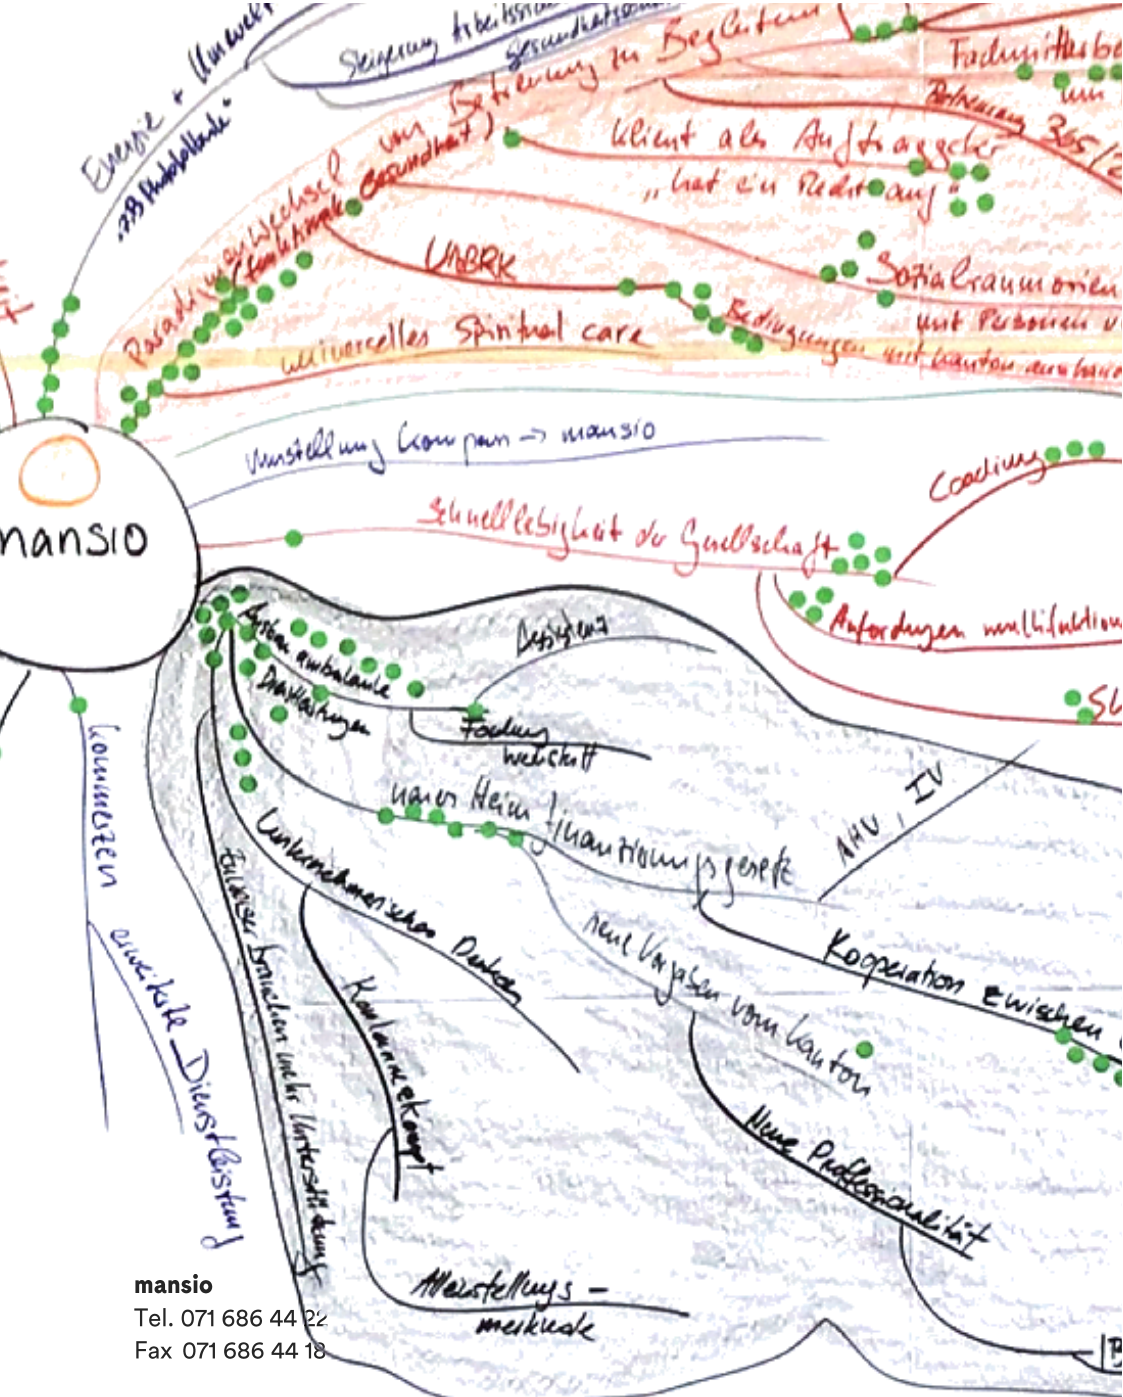 Energie + Umwelt
"z.B. Photo
Steigerung Arbeitssi
Gesundheits
Paradigmenwechsel von Betreuung zu Begleitung
(funktionale Gesundheit)
Fachmitarbe
um
Betreuung 365/2
Klient als Auftraggeber
"hat ein Recht auf"
UNBRK
Sozialraumorien
mit Personen v
Bedingungen mit Kanton aushan
universelles Spiritual care
Umstellung Kompass → mansio
mansio
Schnelllebigkeit der Gesellschaft
Coaching
Anforderungen multifunktion
Ausbau ambulante
Dienstleistungen
Assistenz
Fachung
werkstatt
neues Heimfinanzierungsgesetz
AHV, IV
Kooperation zwischen
neue Vorgaben vom Kanton
Neue Professionalität
Unternehmerisches Denken
Konkurrenz
Alleinstellungs-
merkmale
brauchen mehr Unterstützung
kommerzen
erweiterte Dienstleistung
mansio
Tel. 071 686 44 22
Fax 071 686 44 18